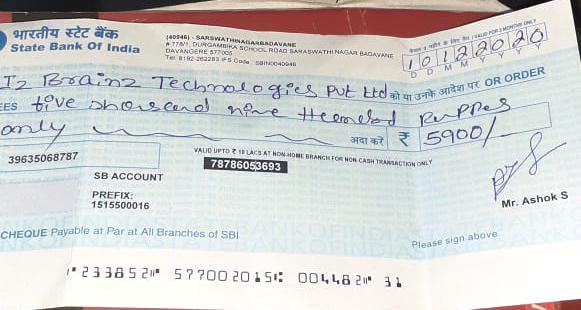 भारतीय स्टेट बैंक
State Bank Of India
(40946) - SARASWATHINAGARBADAVANE
# 778/1, DURGAMBIKA SCHOOL ROAD SARASWATHI NAGAR BADAVANE
DAVANGERE 577005
Tel: 8192-262283 IFS Code : SBIN0040946
VALID FOR 3 MONTHS ONLY
10122020
D D M M Y Y Y Y
I2 Brainz Technologies Pvt Ltd को या उनके आदेश पर OR ORDER
EES five thousand nine Hundred Ruppes
only
अदा करें ₹ 5900/-
39635068787
VALID UPTO ₹ 10 LACS AT NON-HOME BRANCH FOR NON-CASH TRANSACTION ONLY
78786053693
SB ACCOUNT
PREFIX:
1515500016
Mr. Ashok S
CHEQUE Payable at Par at All Branches of SBI
Please sign above
⑈233852⑈ 577002015⑆ 004482⑈ 31